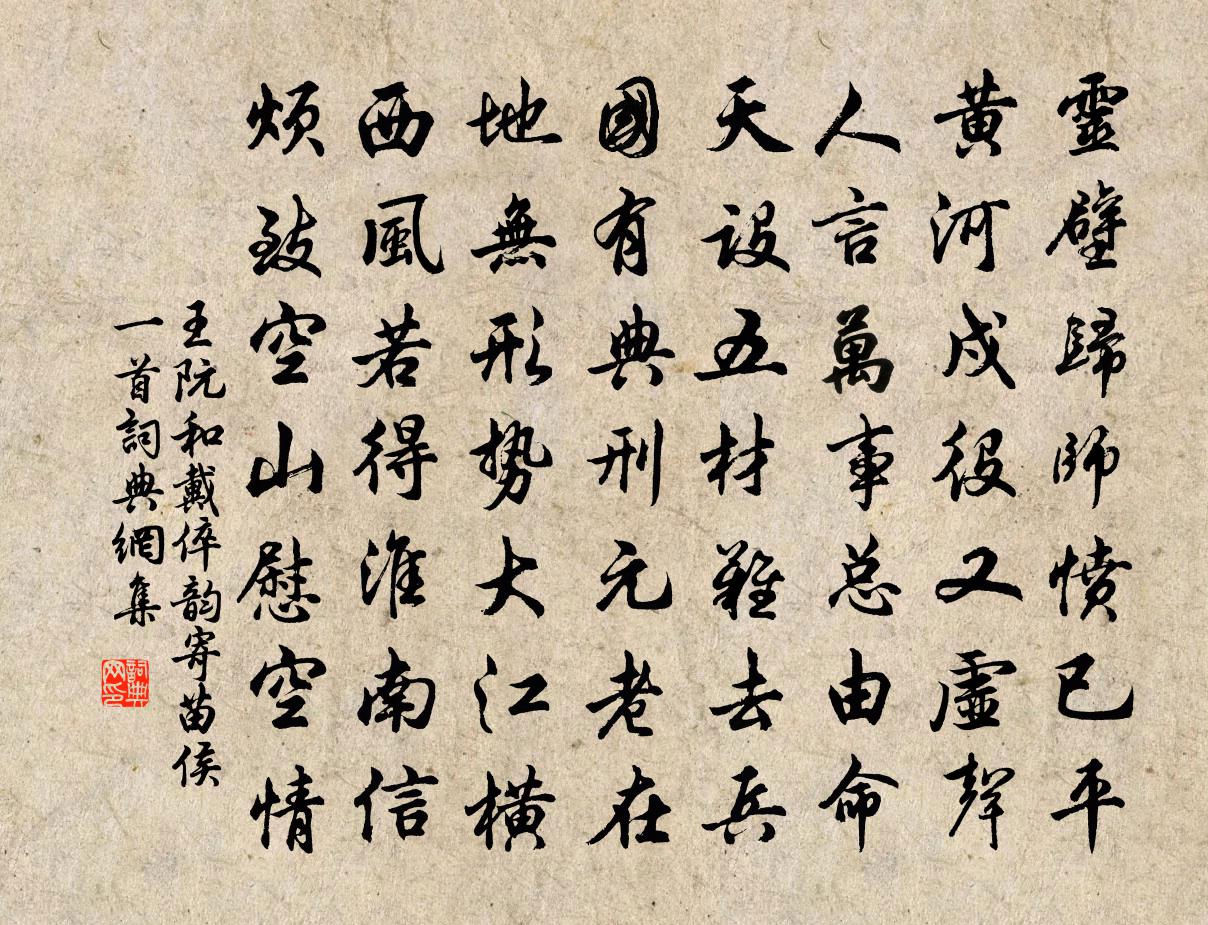 靈壁歸師憤已平
黃河戍役又虛聲
人言萬事總由命
天設五材難去兵
國有典刑元老在
地無形勢大江橫
西風若得淮南信
煩致空山慰空情
王阮和戴倅韵寄苗侯
一首詞典網集
詞典网印